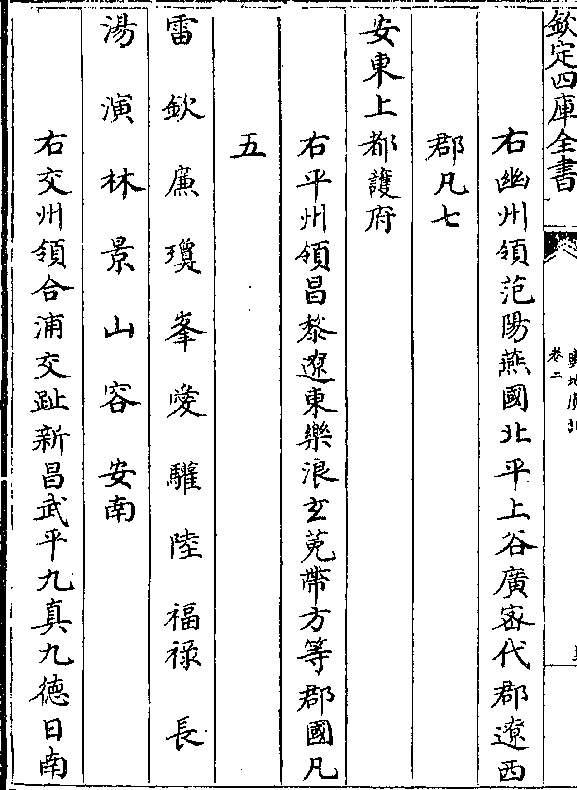 欽定四庫全書
卷二
右幽州領范陽燕國北平上谷廣寗代郡遼西
郡凡七
安東上都護府
右平州領昌黎遼東樂浪玄菟帶方等郡國凡
五
雷欽廉瓊峯愛驩陸福祿長
湯演林景山容安南
右交州領合浦交趾新昌武平九真九德日南